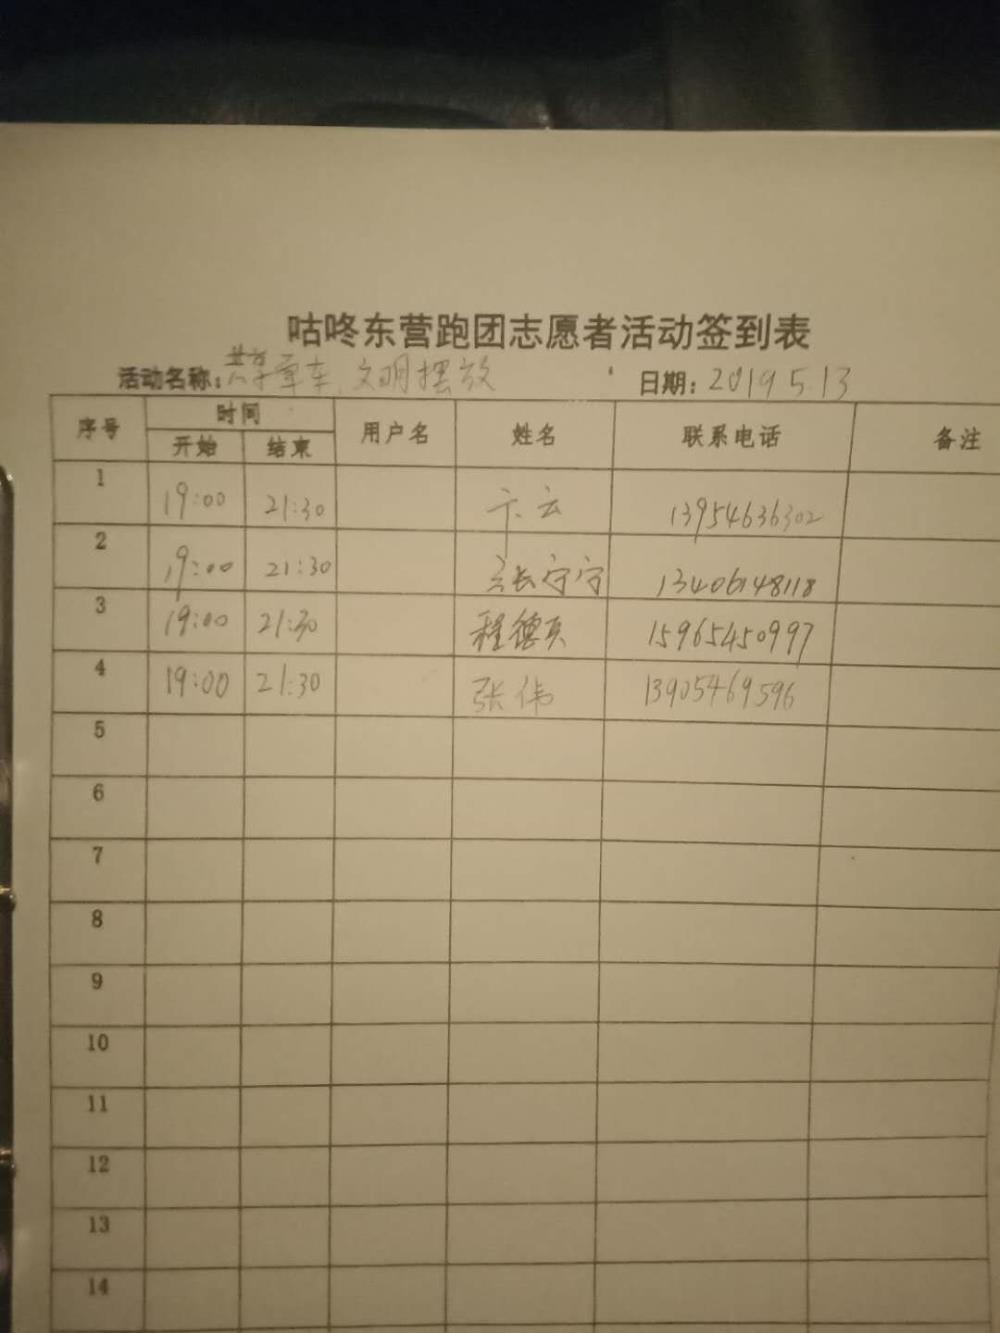 咕咚东营跑团志愿者活动签到表
活动名称：共享单车、文明摆放 日期：2019 5.13
序号 时间 用户名 姓名 联系电话 备注
开始 结束
1 19:00 21:30 卞云 13954636302
2 19:00 21:30 张宁宁 13406148118
3 19:00 21:30 程德 15965450997
4 19:00 21:30 张伟 13905469596
5
6
7
8
9
10
11
12
13
14